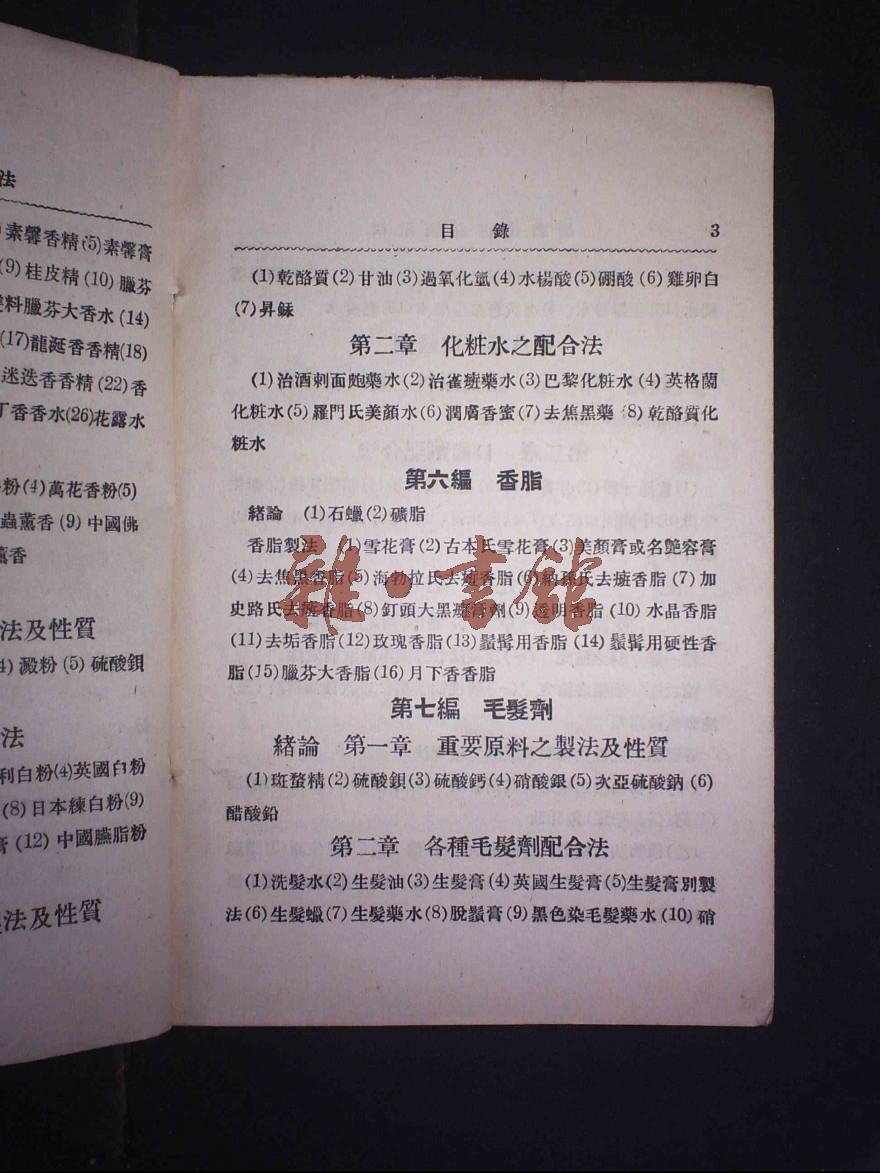 法
素馨香精(5)素馨膏
(9)桂皮精(10)臘芬
料臘芬大香水(14)
(17)龍涎香香精(18)
迷迭香香精(22)香
丁香香水(26)花露水
粉(4)萬花香粉(5)
蟲薰香(9)中國佛
薰香
法及性質
4)澱粉(5)硫酸鋇
法
利白粉(4)英國白粉
(8)日本練白粉(9)
膏(12)中國臙脂粉
法及性質
目錄 3
(1)乾酪質(2)甘油(3)過氧化氫(4)水楊酸(5)硼酸(6)雞卵白
(7)昇銾
第二章 化粧水之配合法
(1)治酒刺面皰藥水(2)治雀癍藥水(3)巴黎化粧水(4)英格蘭
化粧水(5)羅門氏美顏水(6)潤膚香蜜(7)去焦黑藥(8)乾酪質化
粧水
第六編 香脂
緒論 (1)石蠟(2)礦脂
香脂製法 (1)雪花膏(2)古本氏雪花膏(3)美顏膏或名艷容膏
(4)去焦黑香脂(5)海勃拉氏去癍香脂(6)納孫氏去癍香脂(7)加
史路氏去癍香脂(8)釘頭大黑癍膏劑(9)透明香脂(10)水晶香脂
(11)去垢香脂(12)玫瑰香脂(13)鬚髯用香脂(14)鬚髯用硬性香
脂(15)臘芬大香脂(16)月下香香脂
第七編 毛髮劑
緒論 第一章 重要原料之製法及性質
(1)斑蝥精(2)硫酸鋇(3)硫酸鈣(4)硝酸銀(5)次亞硫酸鈉(6)
醋酸鉛
第二章 各種毛髮劑配合法
(1)洗髮水(2)生髮油(3)生髮膏(4)英國生髮膏(5)生髮膏別製
法(6)生髮蠟(7)生髮藥水(8)脫鬚膏(9)黑色染毛髮藥水(10)硝
雜·書館